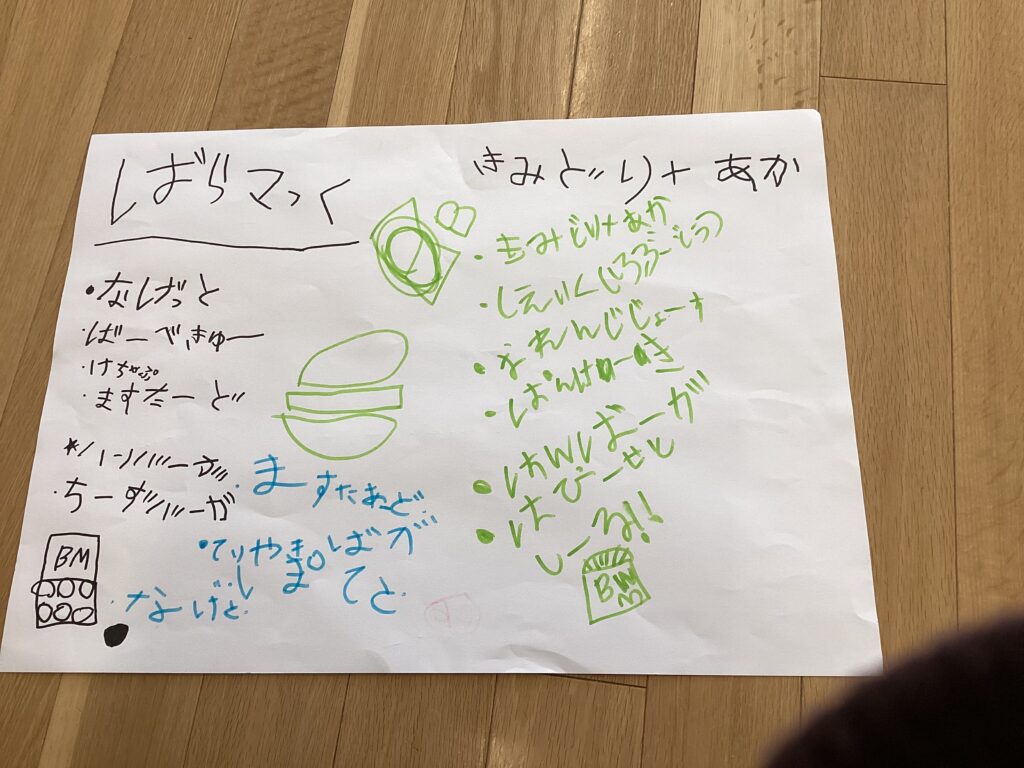 しばらマっく
・なしげっと
・ばーべきゅー
・けちゃぷ
・ますたーど
*ハーンバーが
・ちーずバーガ
BM
・ますたあっど
・てりやきばが
・ぽてと
・なげと
きみどり+あか
・きみどり+あか
・しえいくしろぶどう
・おれんじじょーす
・ぱんけーき
・はんばーが
・はぴーせと
しーる!!
BM